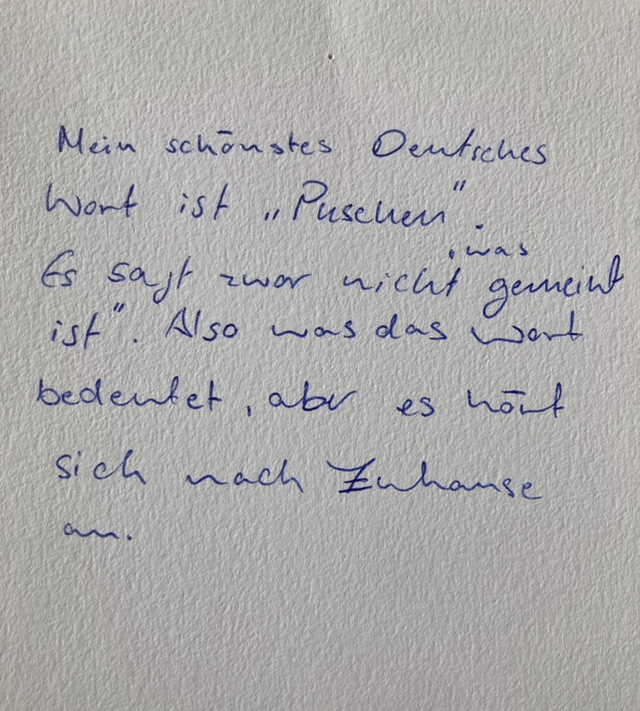 Mein schönstes Deutsches
Wort ist „Puschen".
Es sagt zwar nicht „was gemeint
ist". Also was das Wort
bedeutet, aber es hört
sich nach Zuhause
an.